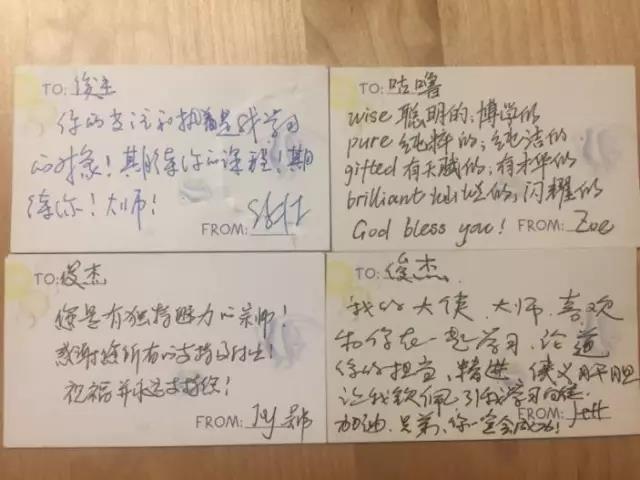 TO: 俊杰
你的专注和执着是我学习
的对象！期待你的课程！期
待你！大师！
FROM:
TO: 咕噜
wise 聪明的；博学的
pure 纯粹的；纯洁的
gifted 有天赋的；有才华的
brilliant 灿烂的，闪耀的
God bless you!
FROM: Zoe
TO: 俊杰
您是有独特魅力的宗师！
感谢您所有的支持与付出！
祝福并永远支持您！
FROM: Ivy
TO: 俊杰
我的大侠、大师，喜欢
和你在一起学习、论道
你的担当、精进、侠义肝胆
让我钦佩，引我学习
加油，兄弟，你一定会成功！
FROM: Jett